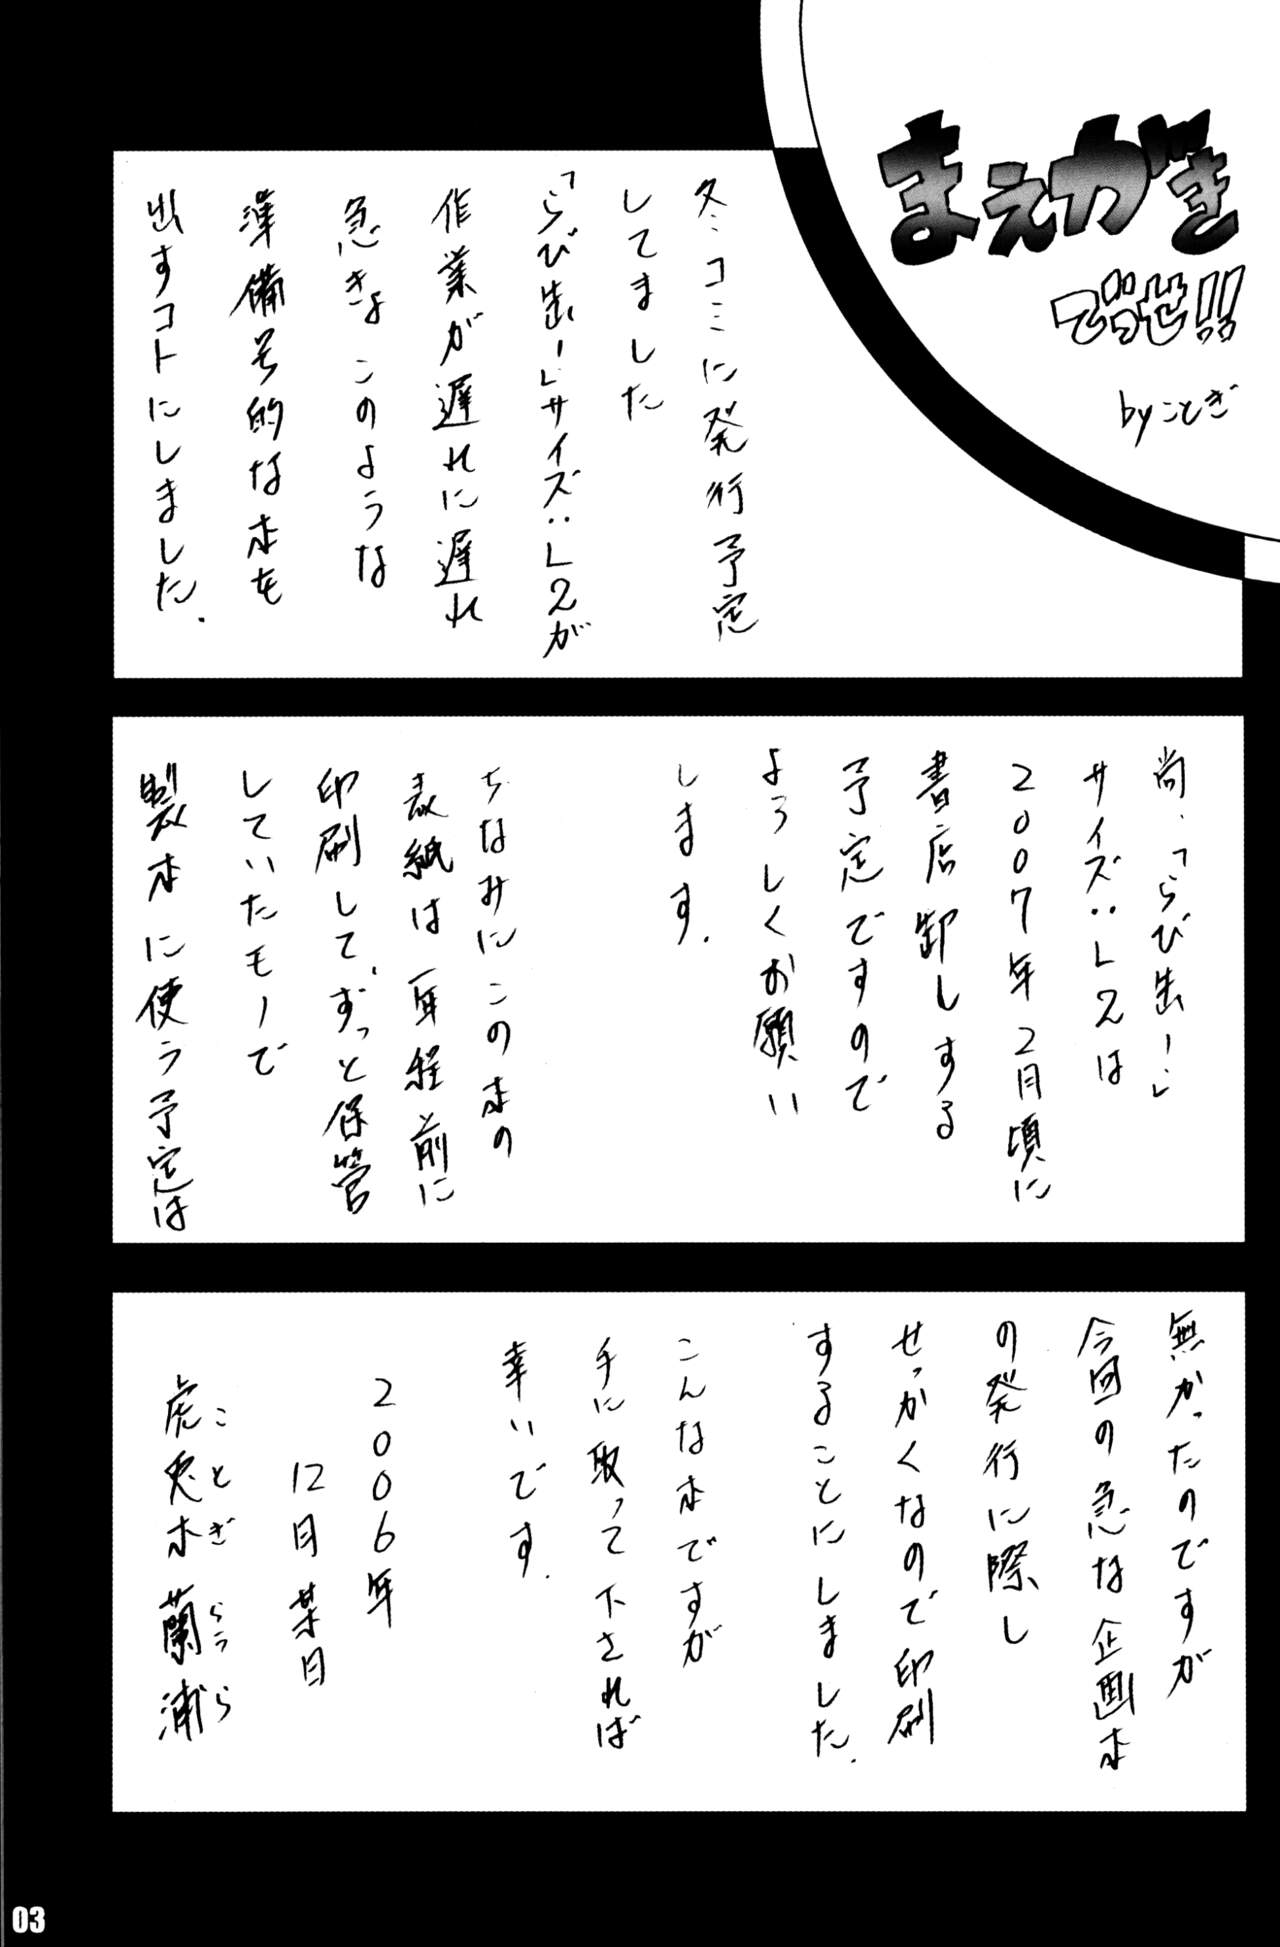 まえがき
でっせ!!
byことぎ
冬コミに発行予定
してました
「らび出!」サイズ:L2が
作業が遅れに遅れ
急きょこのような
準備号的な本を
出すコトにしました.
尚、「らび出!」
サイズ:L2は
2007年2月頃に
書店卸しする
予定ですので
ようしくお願い
します.
ちなみにこの本の
表紙は一年程と前に
印刷して、ずっと保管
していたモノで
製本に使う予定は
無かったのですが
今回の急な企画本
の発行に際し
せっかくなので印刷
することにしました.
こんな本ですが
手に取って下されば
幸いです.
2006年
12月某日
虎兎木蘭浦
ことぎ らうら
03